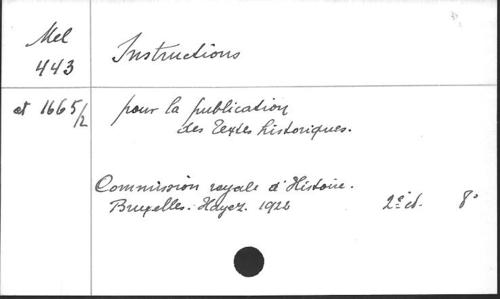 Mel
443
Instructions
et 1665/2
pour la publication
des Textes historiques.
Commission royale d'Histoire.
Bruxelles. Hayez. 1922
2e éd.
8°